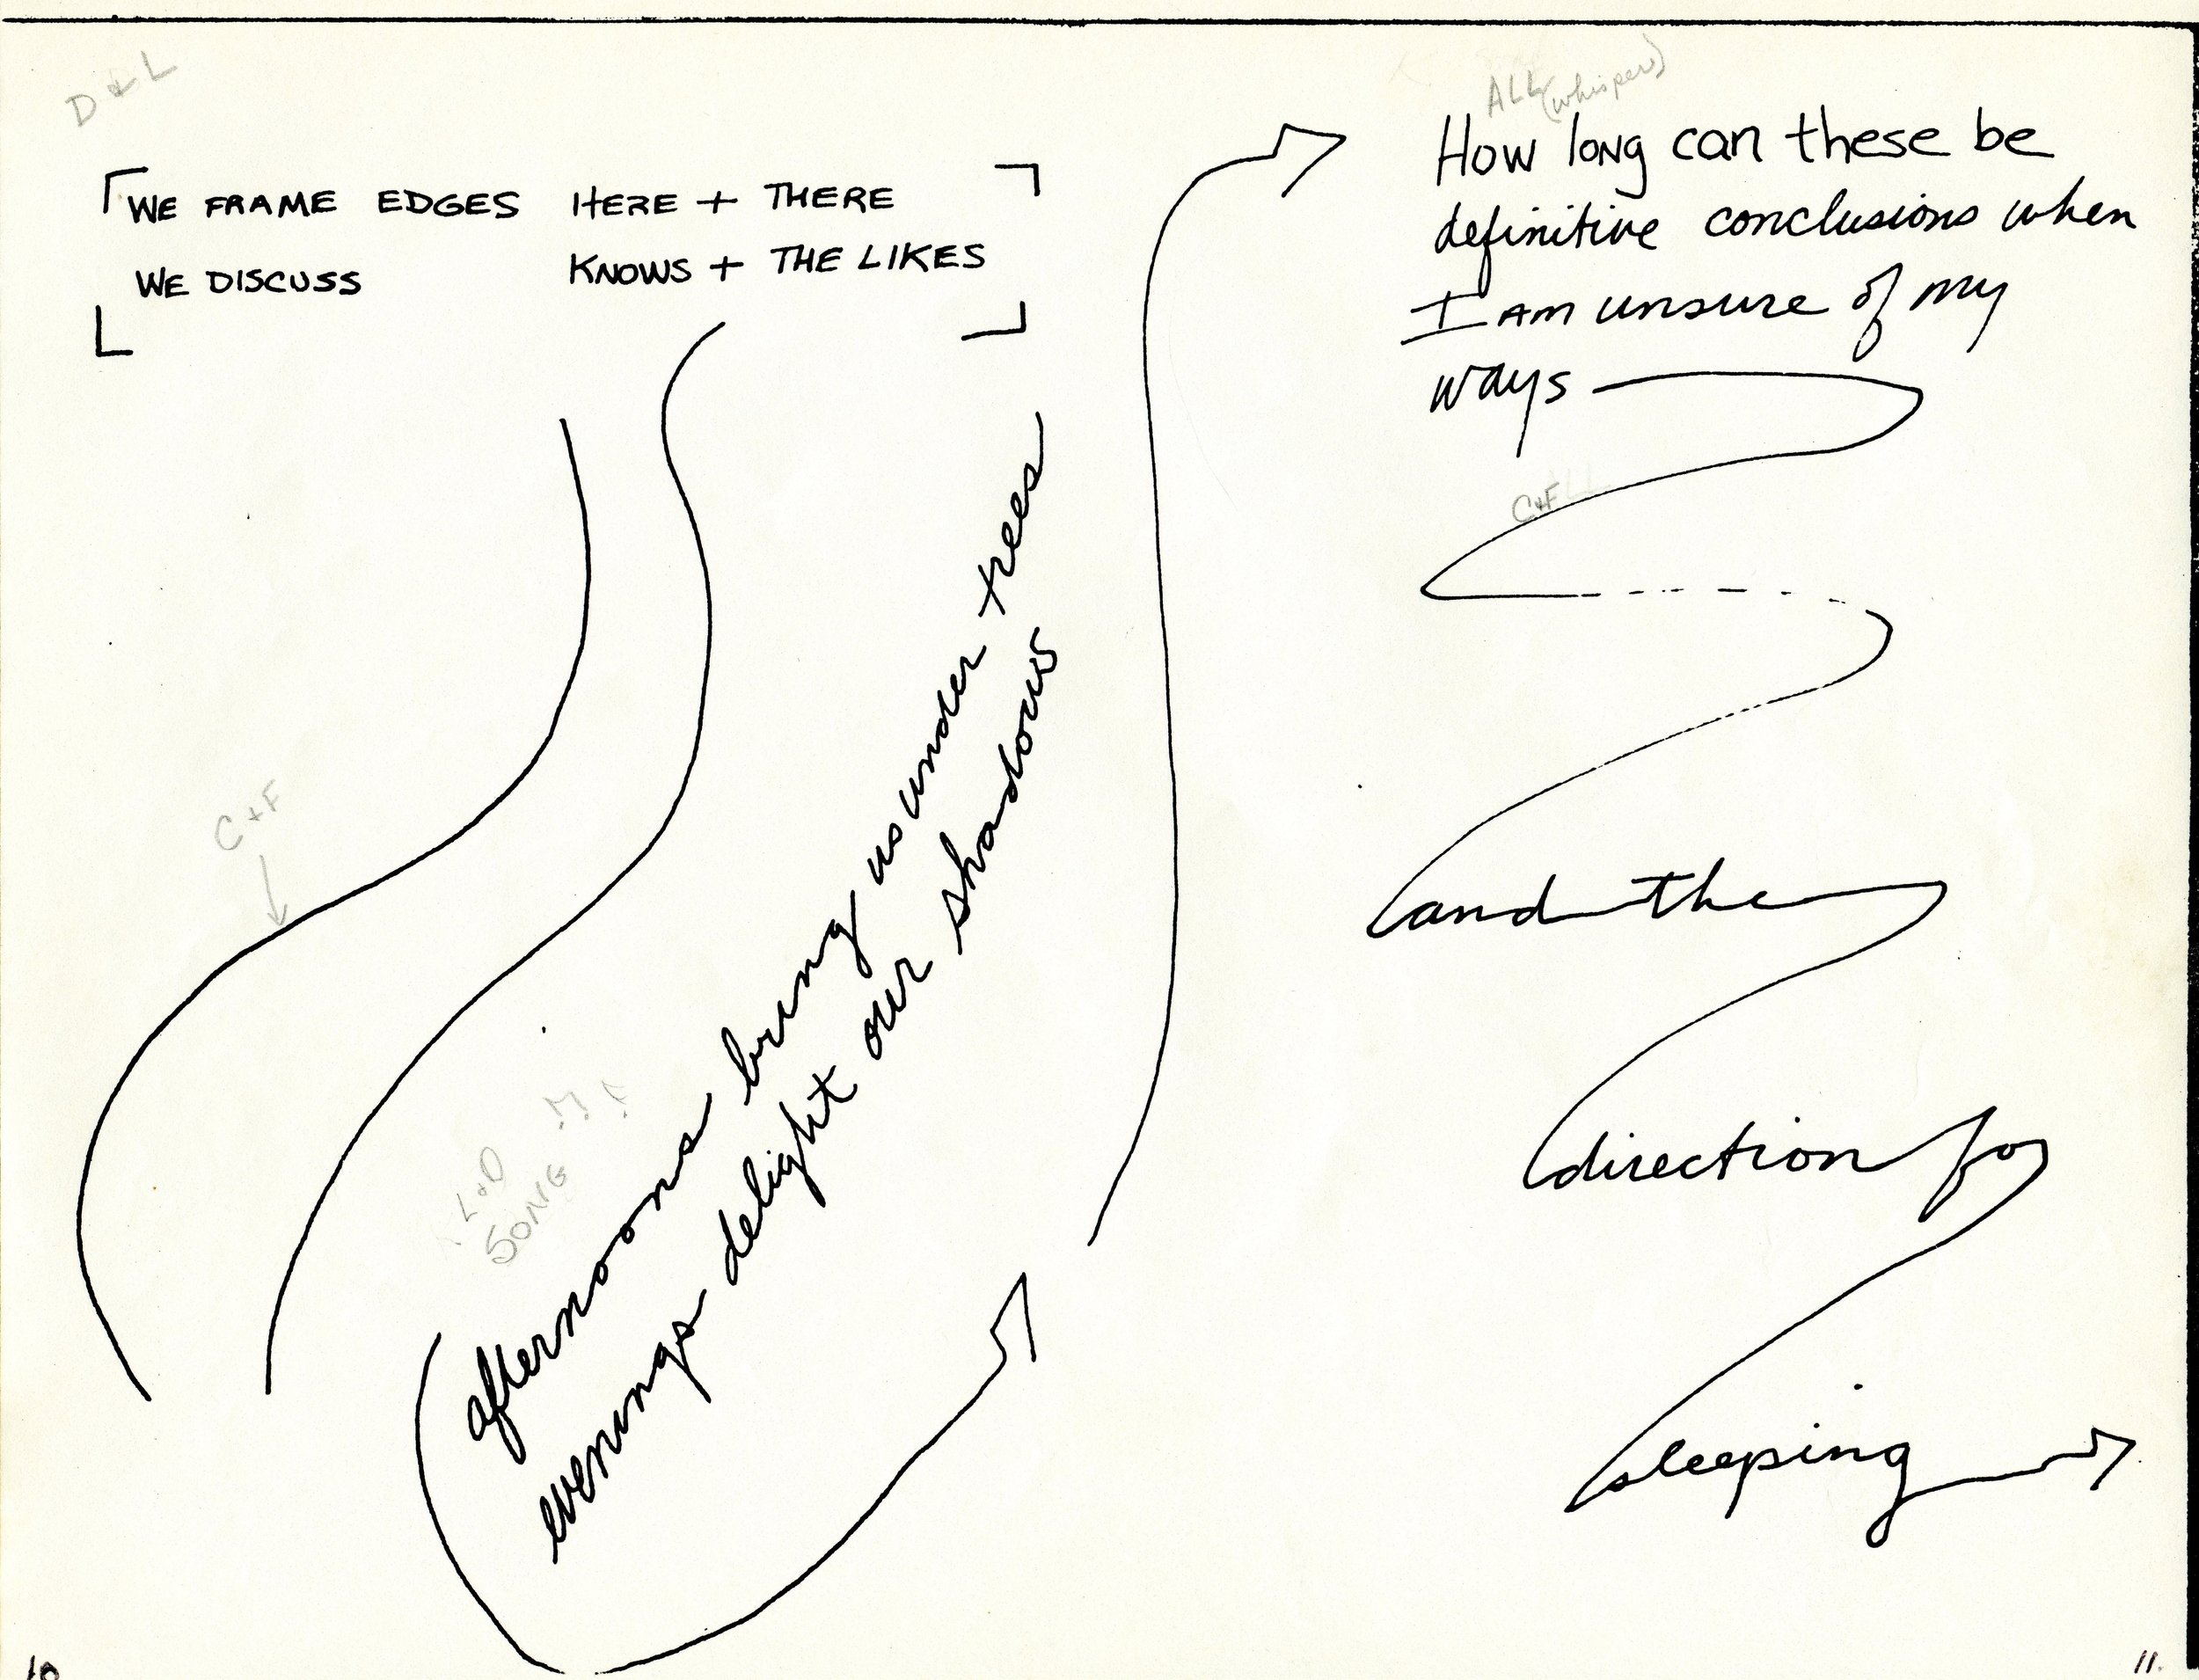 D + L
WE FRAME EDGES HERE + THERE
WE DISCUSS KNOWS + THE LIKES
C + F
L + D
SONG
afternoons bring us under trees
evenings delight our shadows
10
ALL (whisper)
How long can these be
definitive conclusions when
I AM unsure of my
ways
C+F
and the
direction for
sleeping
11.